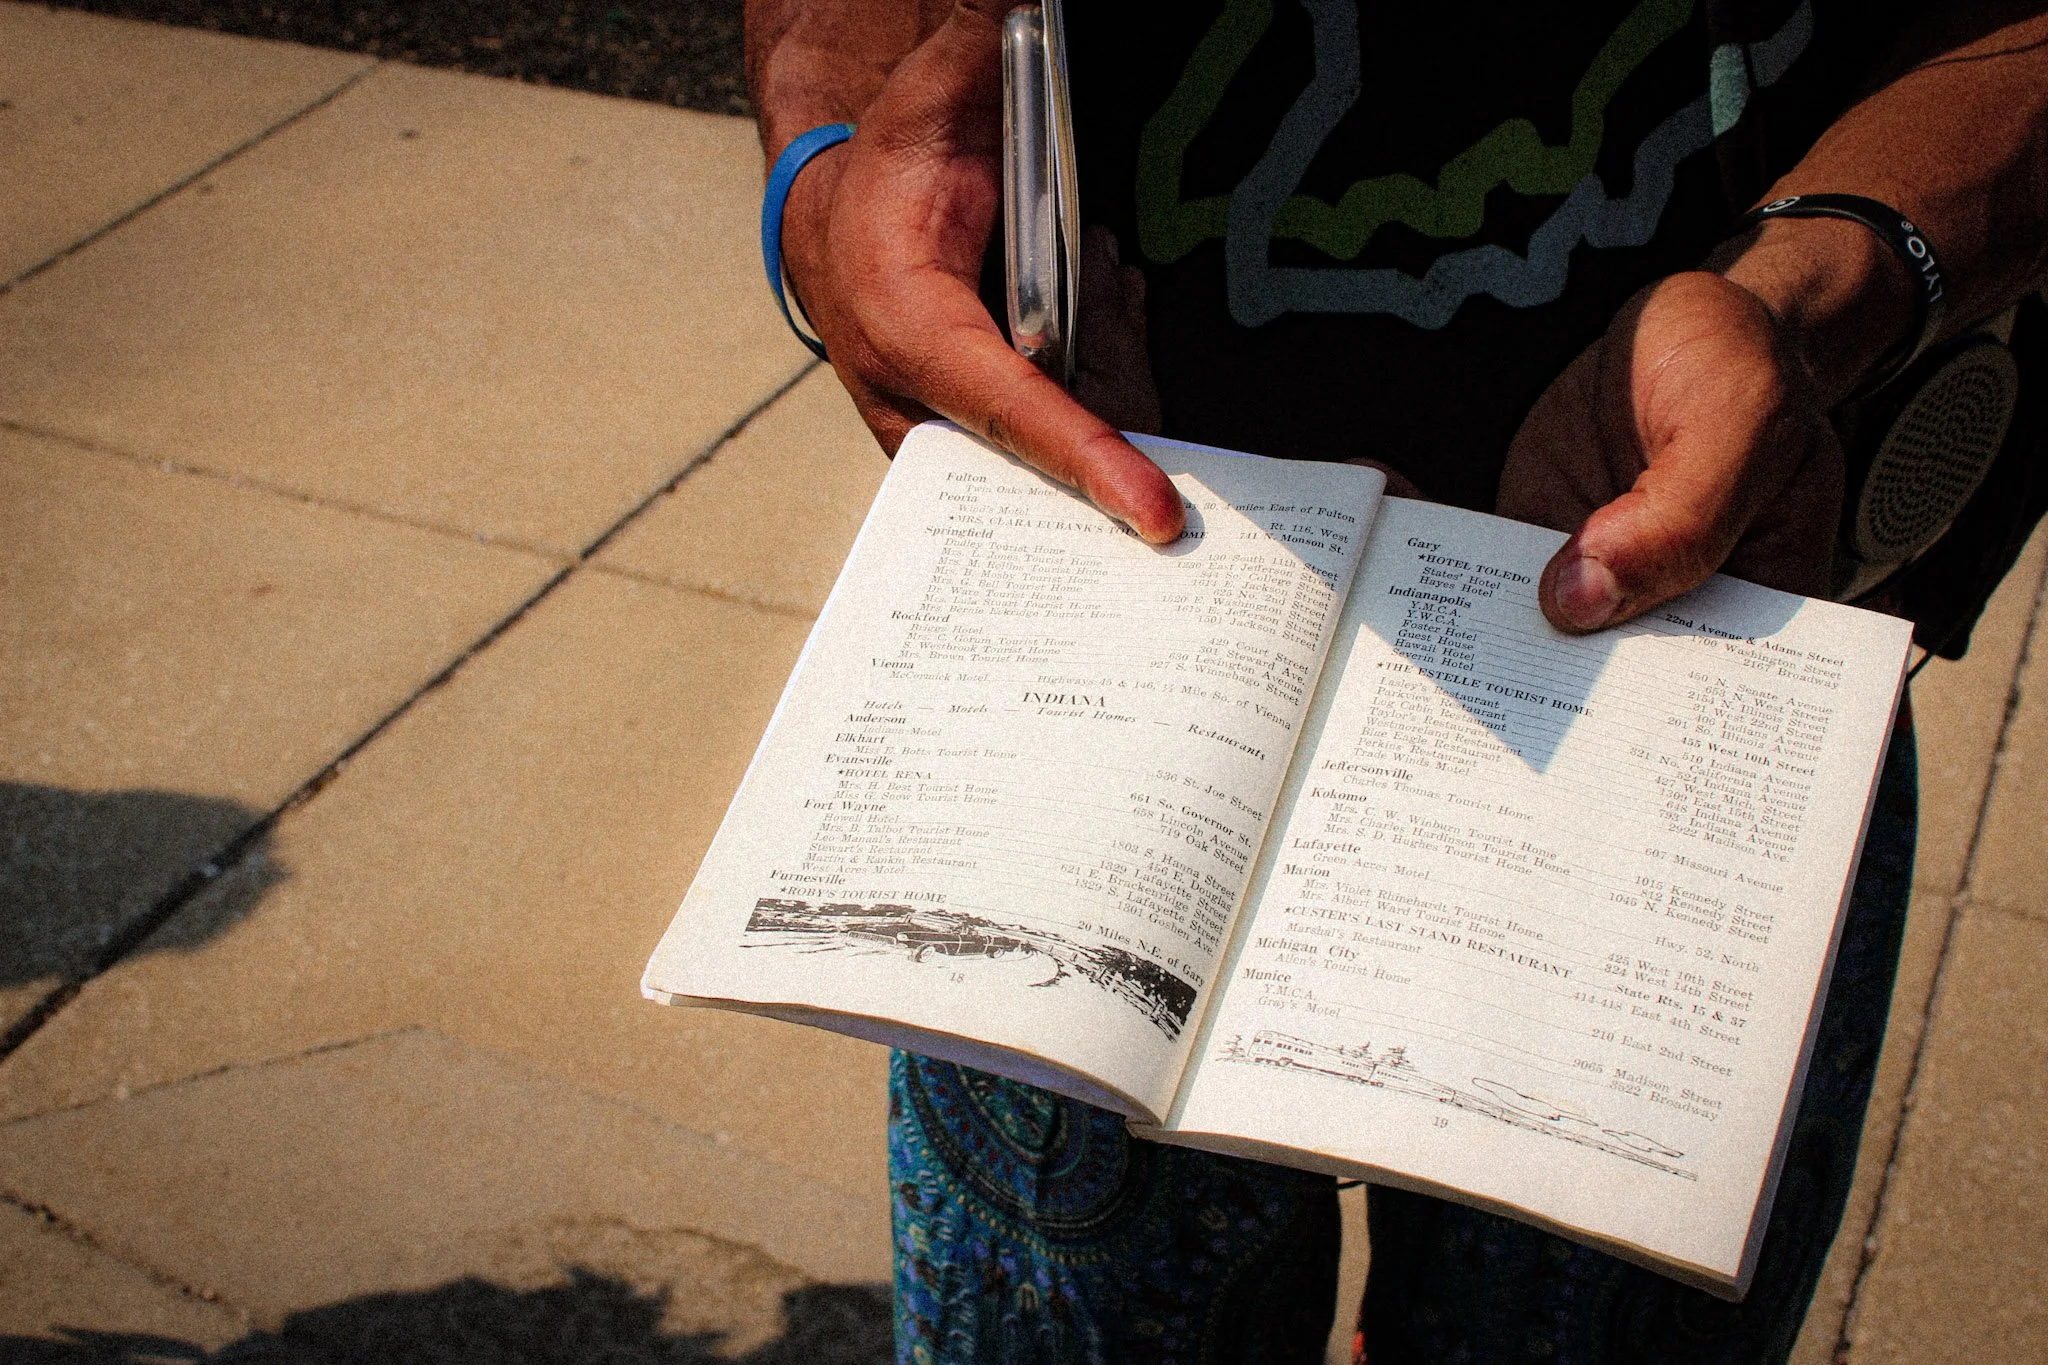 Fulton
Twin Oaks Motel 30, 4 miles East of Fulton
Peoria
Wind's Motel Rt. 116, West
★MRS. CLARA EUBANK'S 741 N. Monson St.
Springfield
Dudley Tourist Home 130 South 11th Street
Mrs. L. Jones Tourist Home 1230 East Jefferson Street
Mrs. M. Rollins Tourist Home 844 So. College Street
Mrs. B. Mosby Tourist Home 1614 E. Jackson Street
Mrs. G. Bell Tourist Home 625 No. 2nd Street
Dr. Ware Tourist Home 1520 E. Washington Street
Mrs. Lula Stuart Tourist Home 1615 E. Jefferson Street
Mrs. Bernie Eskridge Tourist Home 1501 Jackson Street
Rockford
Briggs Hotel 429 Court Street
Mrs. C. Gorum Tourist Home 301 Steward Ave.
S. Westbrook Tourist Home 630 Lexington Avenue
Mrs. Brown Tourist Home 927 S. Winnebago Street
Vienna
McCormick Motel Highways 45 & 146, ½ Mile So. of Vienna
INDIANA
Hotels — Motels — Tourist Homes — Restaurants
Anderson
Indiana Motel
Elkhart
Miss E. Botts Tourist Home 336 St. Joe Street
Evansville
★HOTEL RENA 661 So. Governor St.
Mrs. H. Best Tourist Home 658 Lincoln Avenue
Miss G. Snow Tourist Home 719 Oak Street
Fort Wayne
Howell Hotel 1803 S. Hanna Street
Mrs. B. Talbot Tourist Home 456 E. Douglas
Leo Manual's Restaurant 1329 Lafayette Street
Stewart's Restaurant 621 E. Brackenridge Street
Martin & Rankin Restaurant 1329 S. Lafayette Street
West Acres Motel 1301 Goshen Ave.
Furnesville
★ROBY'S TOURIST HOME 20 Miles N.E. of Gary
18
Gary
★HOTEL TOLEDO 22nd Avenue & Adams Street
States' Hotel 1700 Washington Street
Hayes Hotel 2167 Broadway
Indianapolis
Y.M.C.A. 450 N. Senate Avenue
Y.W.C.A. 653 N. West Street
Foster Hotel 2154 N. Illinois Street
Guest House 31 West 22nd Street
Hawaii Hotel 406 Indiana Avenue
Severin Hotel 201 So. Illinois Avenue
★THE ESTELLE TOURIST HOME 455 West 10th Street
Lasley's Restaurant 510 Indiana Avenue
Parkview Restaurant 321 No. California Avenue
Log Cabin Restaurant 524 Indiana Avenue
Taylor's Restaurant 427 West Mich. Street
Westmoreland Restaurant 1309 East 15th Street
Blue Eagle Restaurant 648 Indiana Avenue
Perkins Restaurant 793 Indiana Avenue
Trade Winds Motel 2922 Madison Ave.
Jeffersonville
Charles Thomas Tourist Home 607 Missouri Avenue
Kokomo
Mrs. C. W. Winburn Tourist Home 1015 Kennedy Street
Mrs. Charles Hardinson Tourist Home 812 Kennedy Street
Mrs. S. D. Hughes Tourist Home 1045 N. Kennedy Street
Lafayette
Green Acres Motel Hwy. 52, North
Marion
Mrs. Violet Rhinehardt Tourist Home 425 West 10th Street
Mrs. Albert Ward Tourist Home 324 West 14th Street
★CUSTER'S LAST STAND RESTAURANT State Rts. 15 & 37
Marshal's Restaurant 414-418 East 4th Street
Michigan City
Allen's Tourist Home 210 East 2nd Street
Munice
Y.M.C.A. 9065 Madison Street
Gray's Motel 3522 Broadway
19